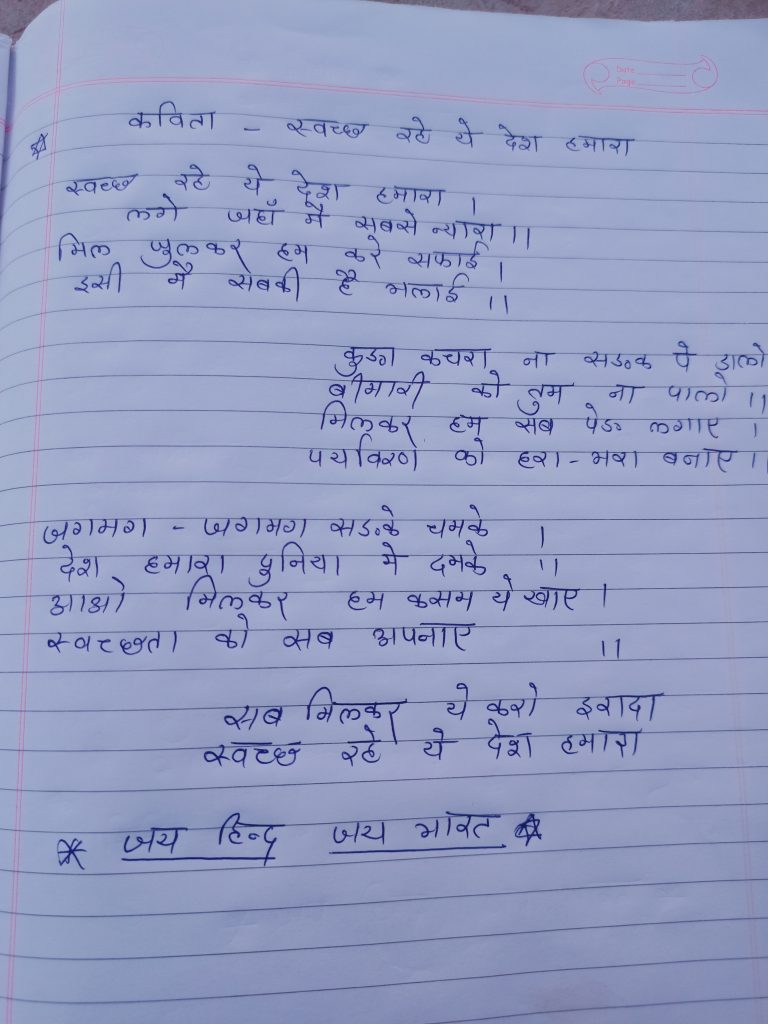 Date
Page
कविता - स्वच्छ रहे ये देश हमारा
स्वच्छ रहे ये देश हमारा ।
लगे जहाँ मै सबसे न्यारा ।।
मिल जुलकर हम करे सफाई ।
इसी मै सबकी है भलाई ।।
कुडा कचरा ना सडक पे डालो
बीमारी को तुम ना पालो ।।
मिलकर हम सब पेड लगाए ।
पर्यावरण को हरा-भरा बनाए ।।
जगमग - जगमग सडके चमके ।
देश हमारा दुनिया मे दमके ।।
आओ मिलकर हम कसम ये खाए ।
स्वच्छता को सब अपनाए ।।
सब मिलकर ये करो इरादा
स्वच्छ रहे ये देश हमारा
जय हिन्द जय भारत